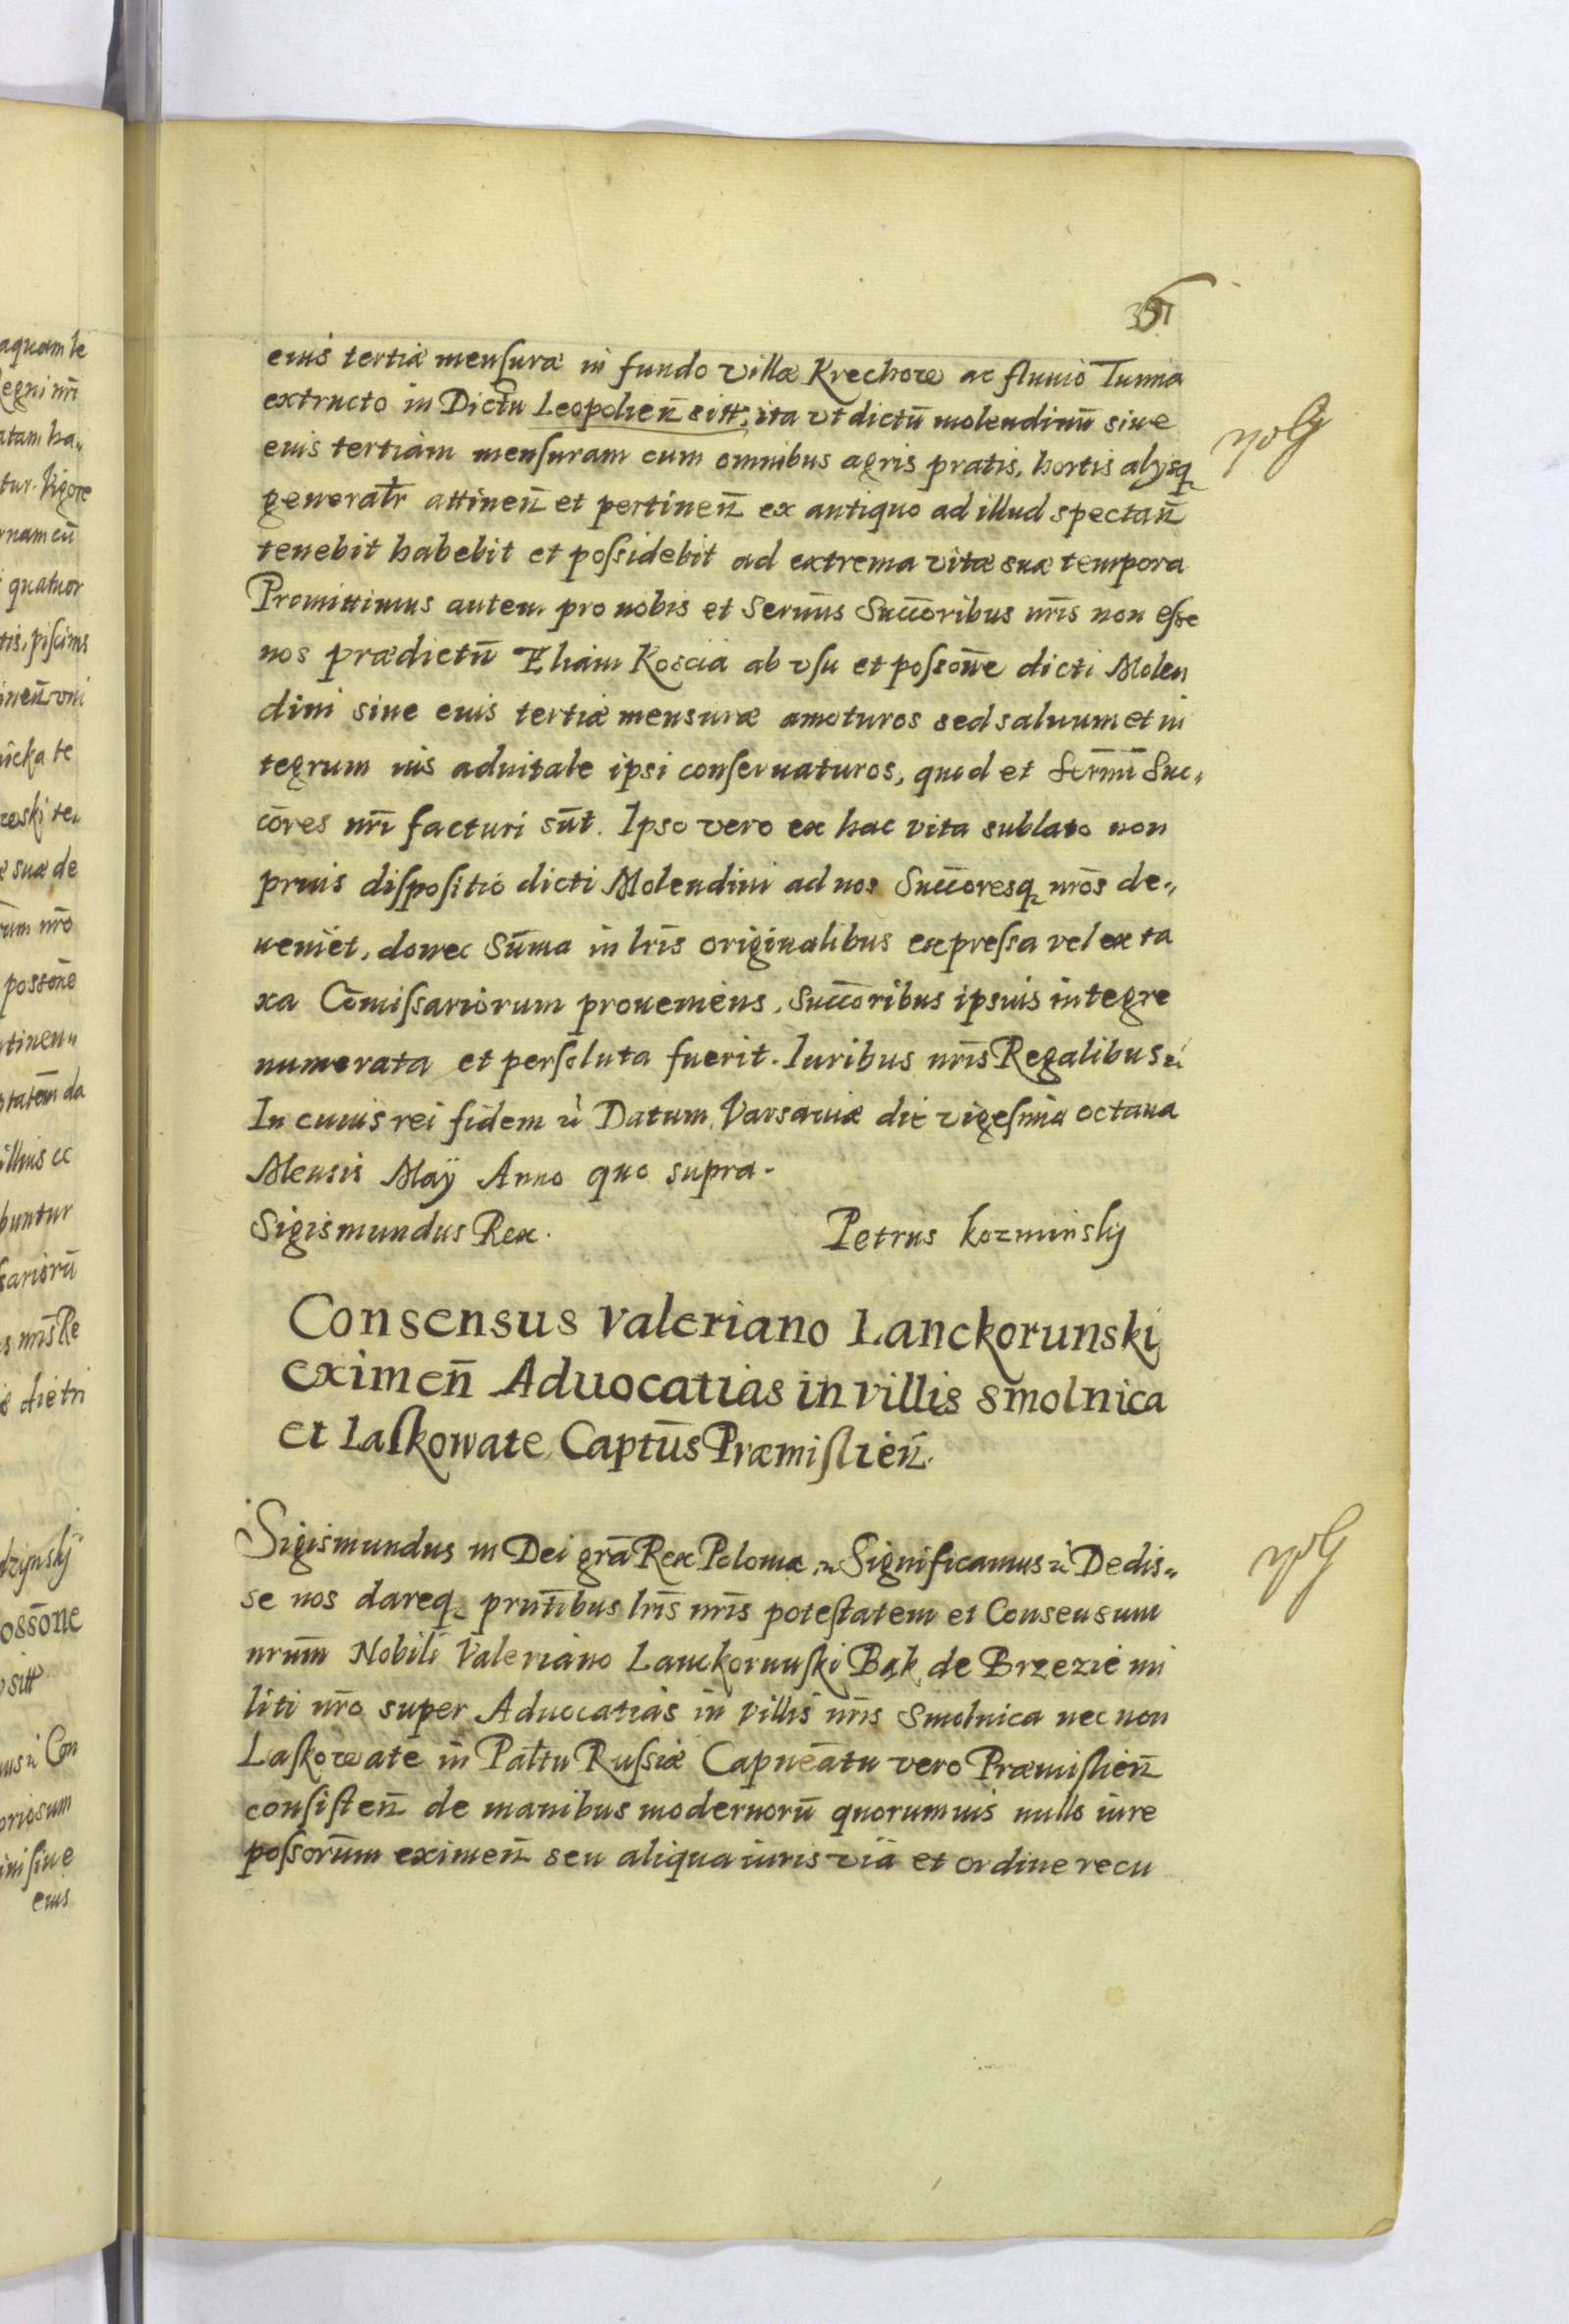 eius tertiæ mensuræ in fundo villæ Krechow ac fluuio Tunia
extructo in Dictū Leopolien̄ sitt, ita vt dictū molendinū siue
eius tertiam mensuram cum omnibus agris pratis, hortis alysq
generatr attinen̄ et pertinen̄ ex antiquo ad illud spectan̄
tenebit habebit et possidebit ad extrema vitæ suæ tempora
Promittimus autem pro nobis et Sermis Succoribus nris non esse
nos prædictū Eliam Koscia ab vsu et possone dicti Molen
dini siue eius tertiæ mensuræ amoturos sed saluum et in
tegrum ius aduitale ipsi conseruaturos, quod et Sermi Suc„
cōres nrī facturi sūt. Ipso vero ex hac vita sublato non
prius dispositio dicti Molendini ad nos Succoresq nrōs de„
ueniet, donec Sūma in lrīs originalibus expressa vel ex ta
xa Cōmissariorum proueniens, Succoribus ipsius integre
numerata et persoluta fuerit. Iuribus nrīs Regalibus
In cuius rei fidem Datum Varsauiæ die vigesima octaua
Mensis Maÿ Anno quo supra.
Sigismundus Rex. Petrus kozminskj
Consensus Valeriano Lanckorunski
eximen̄ Aduocatias in villis Smolnica
et Laskowate Captūs Præmislien̄.
Sigismundus III Dei grā Rex Poloniæ Significamus Dedis„
se nos dareq prūtibus lrīs nrīs potestatem et Consensum
nrūm Nobili Valeriano Lanckorunski Bąk de Brzezie mi
liti nrō super Aduocatias in Villis nrīs Smolnica nec non
Laskowate in Paltu Russiæ Capneatu vero Præmislien̄
consisten̄ de manibus modernorū quorumuis nullo iure
possorūm eximen̄ seu aliqua iuris via et ordine recu